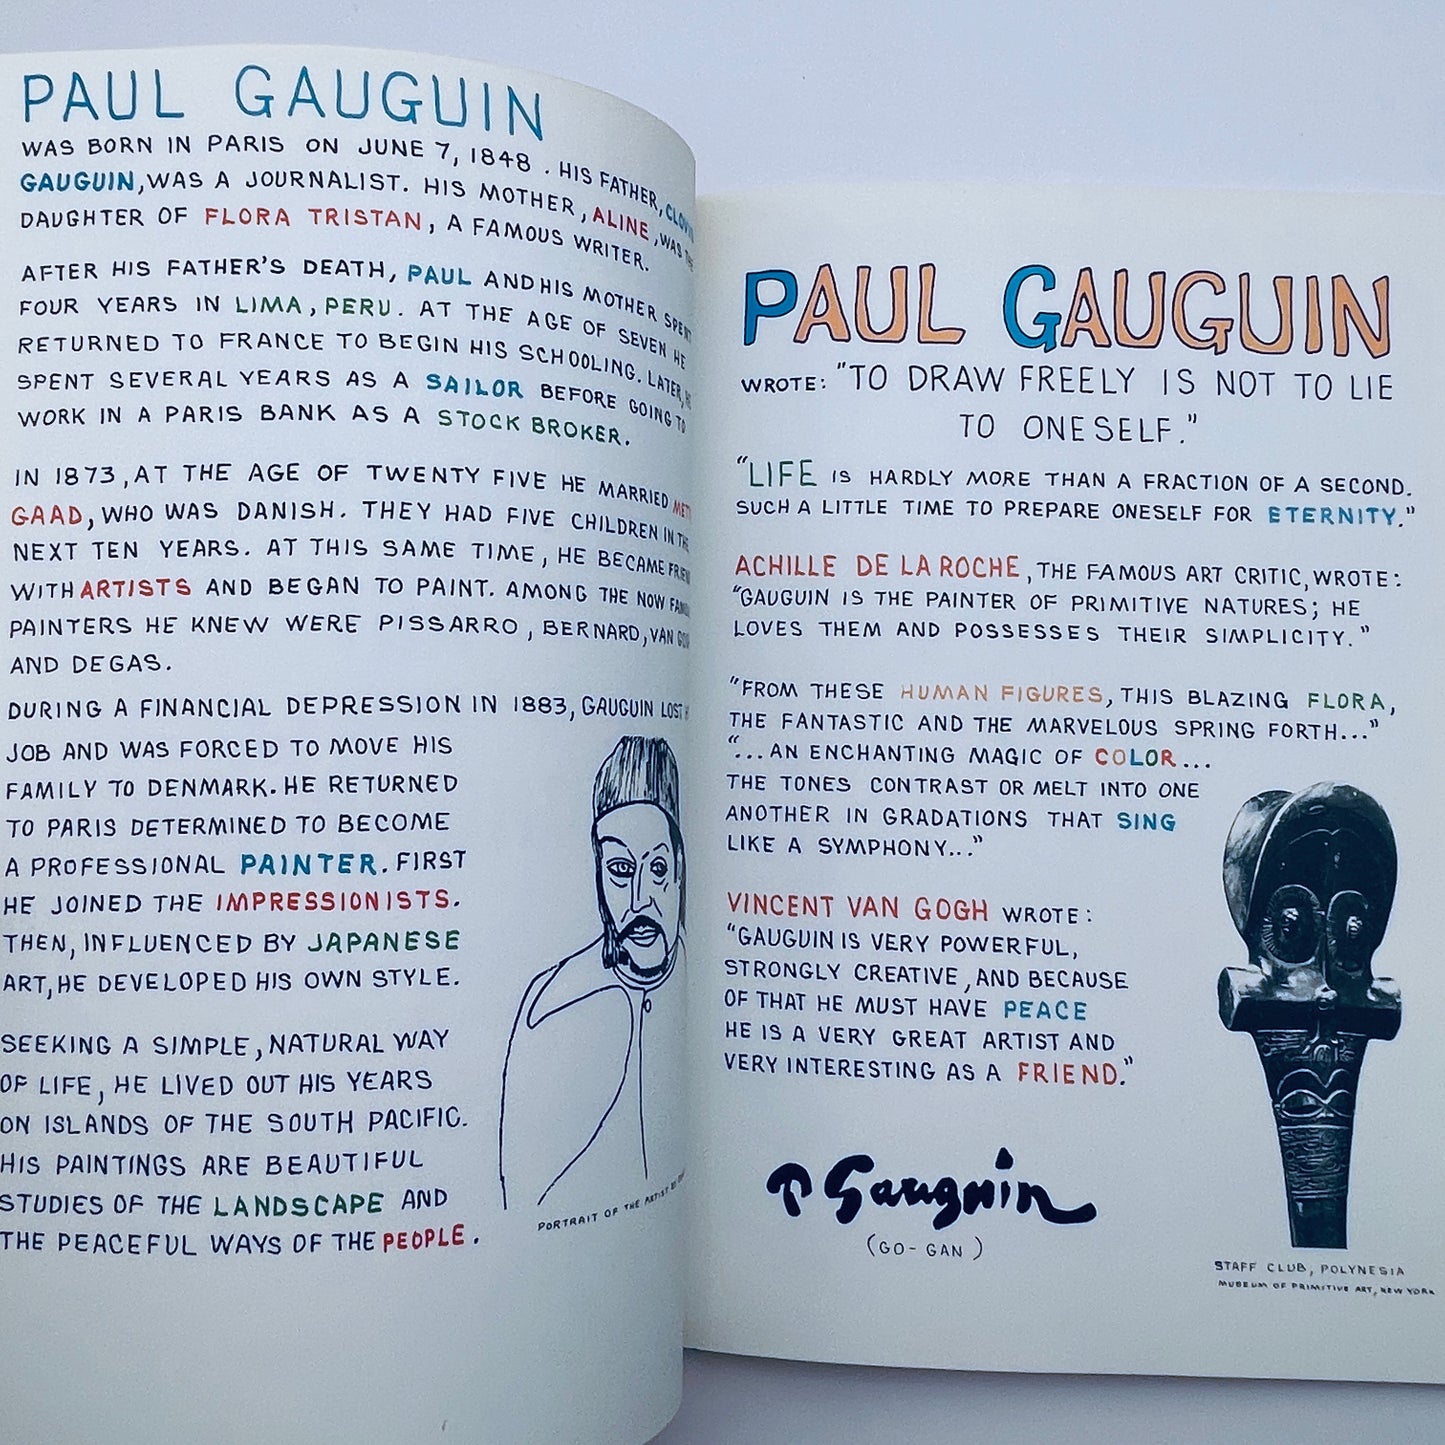 PAUL GAUGUIN
WAS BORN IN PARIS ON JUNE 7, 1848. HIS FATHER,
GAUGUIN, WAS A JOURNALIST. HIS MOTHER, ALINE, WAS THE
DAUGHTER OF FLORA TRISTAN, A FAMOUS WRITER.
AFTER HIS FATHER'S DEATH, PAUL AND HIS MOTHER SPENT
FOUR YEARS IN LIMA, PERU. AT THE AGE OF SEVEN HE
RETURNED TO FRANCE TO BEGIN HIS SCHOOLING. LATER, HE
SPENT SEVERAL YEARS AS A SAILOR BEFORE GOING TO
WORK IN A PARIS BANK AS A STOCK BROKER.
IN 1873, AT THE AGE OF TWENTY FIVE HE MARRIED
GAAD, WHO WAS DANISH. THEY HAD FIVE CHILDREN IN THE
NEXT TEN YEARS. AT THIS SAME TIME, HE BECAME
WITH ARTISTS AND BEGAN TO PAINT. AMONG THE NOW
PAINTERS HE KNEW WERE PISSARRO, BERNARD, VAN
AND DEGAS.
DURING A FINANCIAL DEPRESSION IN 1883, GAUGUIN LOST
JOB AND WAS FORCED TO MOVE HIS
FAMILY TO DENMARK. HE RETURNED
TO PARIS DETERMINED TO BECOME
A PROFESSIONAL PAINTER. FIRST
HE JOINED THE IMPRESSIONISTS.
THEN, INFLUENCED BY JAPANESE
ART, HE DEVELOPED HIS OWN STYLE.
SEEKING A SIMPLE, NATURAL WAY
OF LIFE, HE LIVED OUT HIS YEARS
ON ISLANDS OF THE SOUTH PACIFIC.
HIS PAINTINGS ARE BEAUTIFUL
STUDIES OF THE LANDSCAPE AND
THE PEACEFUL WAYS OF THE PEOPLE.
PORTRAIT OF THE ARTIST
PAUL GAUGUIN
WROTE: "TO DRAW FREELY IS NOT TO LIE
TO ONESELF."
"LIFE IS HARDLY MORE THAN A FRACTION OF A SECOND.
SUCH A LITTLE TIME TO PREPARE ONESELF FOR ETERNITY."
ACHILLE DE LA ROCHE, THE FAMOUS ART CRITIC, WROTE:
"GAUGUIN IS THE PAINTER OF PRIMITIVE NATURES; HE
LOVES THEM AND POSSESSES THEIR SIMPLICITY."
"FROM THESE HUMAN FIGURES, THIS BLAZING FLORA,
THE FANTASTIC AND THE MARVELOUS SPRING FORTH..."
"...AN ENCHANTING MAGIC OF COLOR...
THE TONES CONTRAST OR MELT INTO ONE
ANOTHER IN GRADATIONS THAT SING
LIKE A SYMPHONY..."
VINCENT VAN GOGH WROTE:
"GAUGUIN IS VERY POWERFUL,
STRONGLY CREATIVE, AND BECAUSE
OF THAT HE MUST HAVE PEACE
HE IS A VERY GREAT ARTIST AND
VERY INTERESTING AS A FRIEND."
P Gauguin
(GO-GAN)
STAFF CLUB, POLYNESIA
MUSEUM OF PRIMITIVE ART, NEW YORK